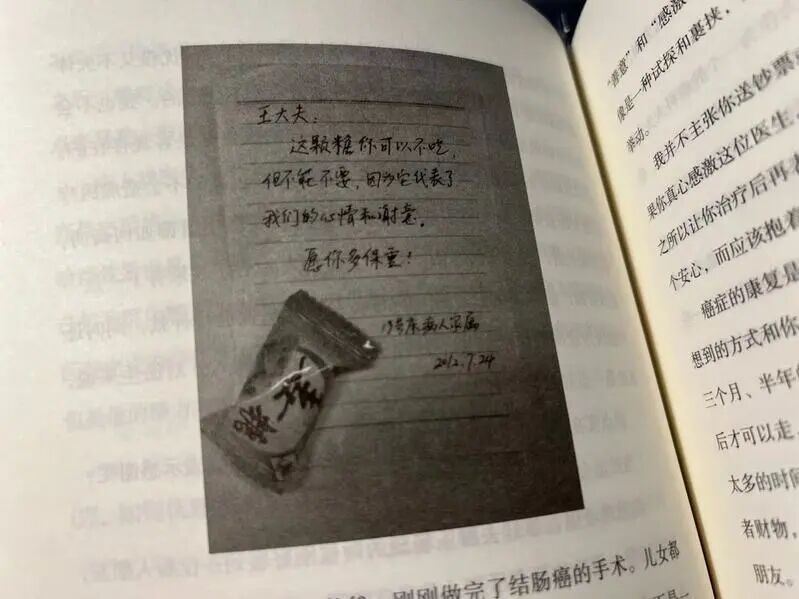 王大夫：
这颗糖你可以不吃，
但不能不要，因为它代表了
我们的心情和谢意。
愿你多保重！
19号床病人家属
2012.7.24
刚刚做完了结肠癌的手术。儿女都
“善意”和“感激
像是一种试探和裹挟，
举动。
我并不主张你送钞票
果你真心感激这位医生
之所以让你治疗后再
个安心，而应该抱着
癌症的康复是
想到的方式和你
三个月、半年
后才可以走，
太多的时间
者财物，
朋友。